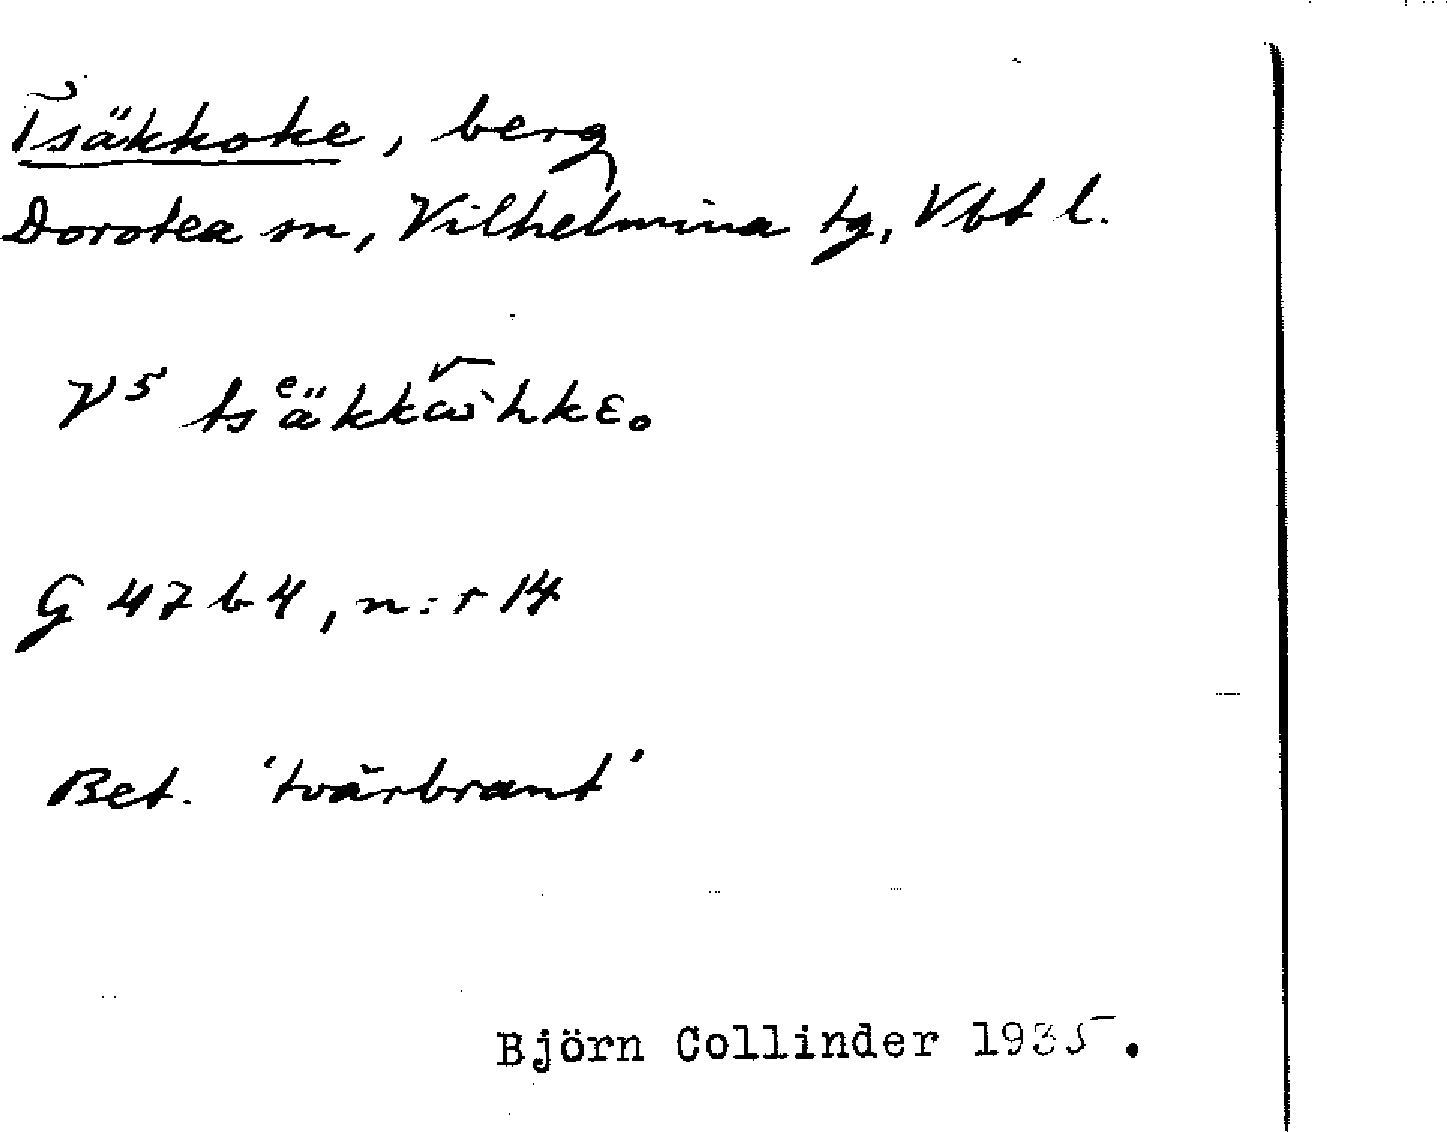 Tsäkkoke, berg
Dorotea sn, Vilhelmina tg, Vbt l.
V5
G 47 b 4, n:r 14
Bet. 'tvärbrant'
Björn Collinder 1935.